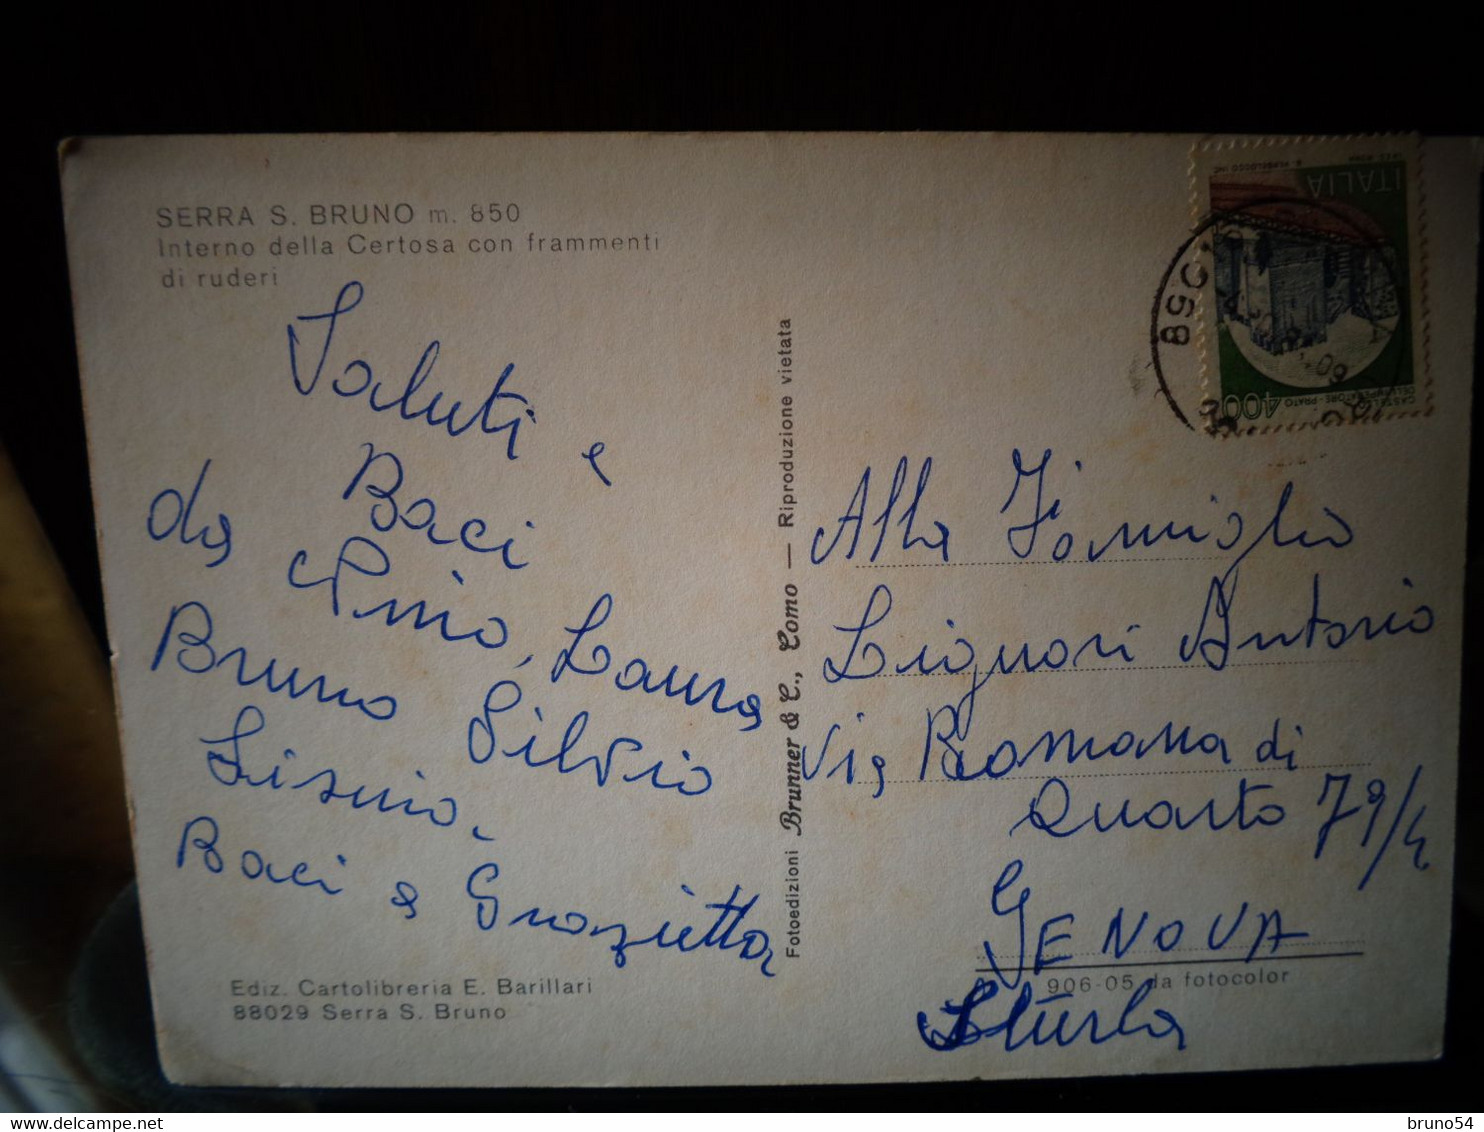 SERRA S. BRUNO m. 850
Interno della Certosa con frammenti
di ruderi
Saluti e
Baci
da Pino, Laura
Bruno Silvio
Lisino.
Baci a Grazietta
Ediz. Cartolibreria E. Barillari
88029 Serra S. Bruno
Fotoedizioni Brunner & C., Como — Riproduzione vietata
ITALIA
400
CASTELLO DELL'IMPERATORE - PRATO
Alla Famiglia
Liguori Antonio
Via Romana di
Quarto 79/4
GENOVA
Sturla
906-05 da fotocolor
bruno54